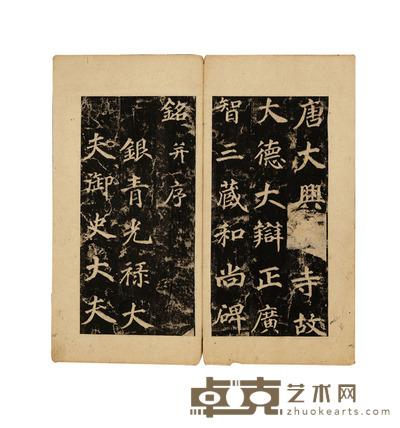 唐大興寺故
大德大辯正廣
智三藏和尚碑
銘并序
銀青光祿大
夫御史大夫
卓克艺术网
zhuokearts.com